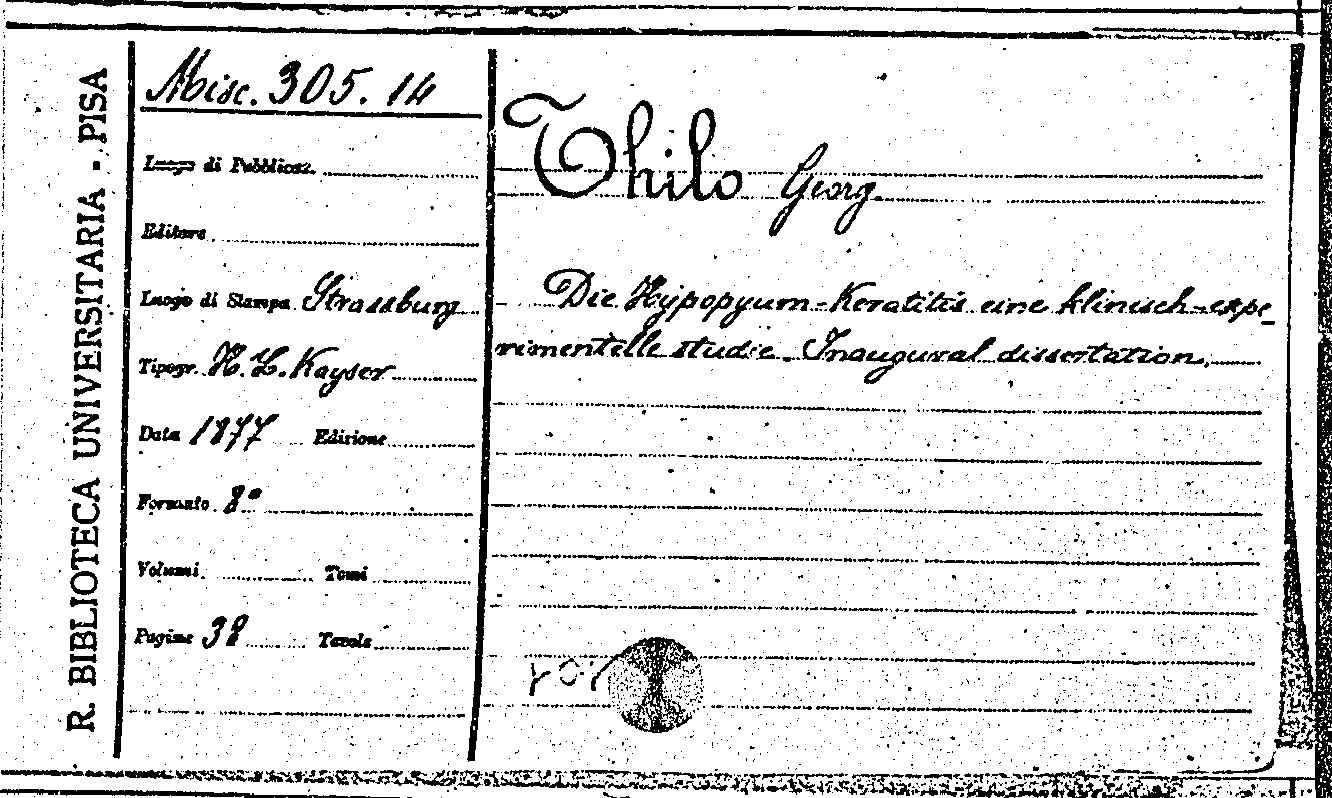 R. BIBLIOTECA UNIVERSITARIA - PISA
Misc. 305. 14
Luogo di Pubblicaz.
Editore
Luogo di Stampa Strassburg
Tipogr. H. L. Kayser
Data 1877 Edizione
Formato 8°
Volumi Tomi
Pagine 38 Tavole
Thilo Georg
Die Hypopyum-Keratitis eine klinisch-expe_
rimentelle studie. Inaugural dissertation.